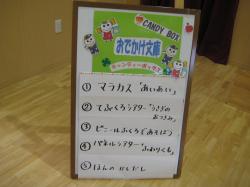 CANDY BOX
おでかけ文庫
キャンディーボックス
① マラカス「あいあい」
② てぶくろシアター「うさぎの
おつきみ」
③ ビニールふくろであそぼう
④ パネルシアター「ふわりくも」
⑤ ほんの かしだし